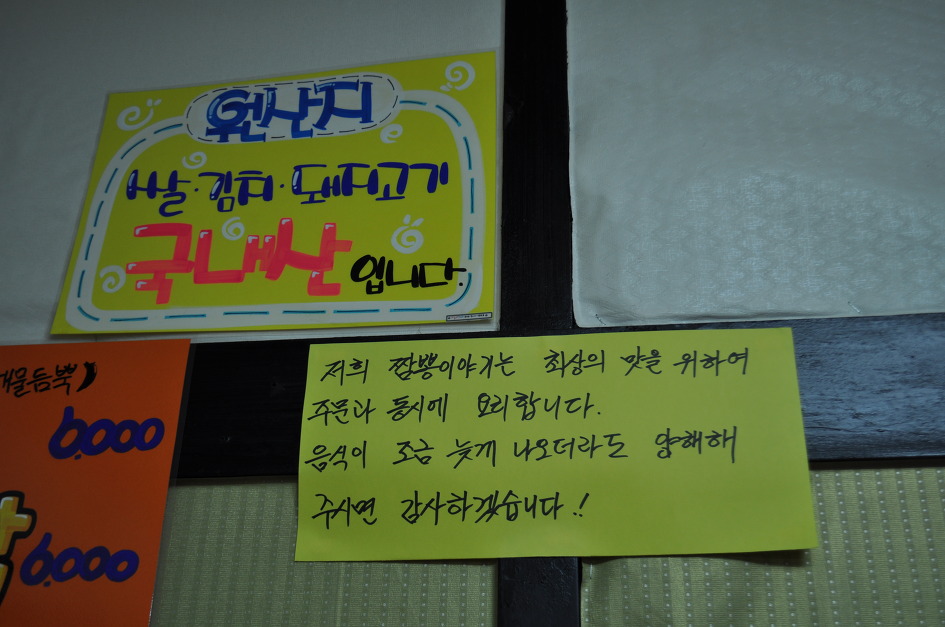 원산지
쌀·김치·돼지고기
국내산 입니다.
해물듬뿍
6,000
6,000
저희 짬뽕이야기는 최상의 맛을 위하여
주문과 동시에 요리합니다.
음식이 조금 늦게 나오더라도 양해해
주시면 감사하겠습니다.!